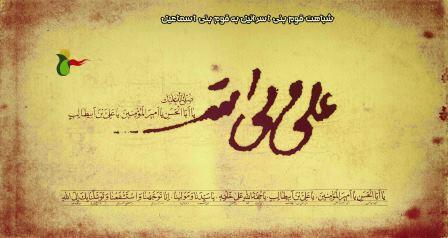 شباهت قوم بنی اسرائیل به قوم بنی اسماعیل
علی ولی الله
صلوات الله علیک
یا اَبَا الْحَسَنِ یا اَمیرَ الْمُؤْمِنینَ یا عَلِیَّ بْنَ اَبیطالِبٍ
یا اَبَا الْحَسَنِ یا اَمیرَ الْمُؤْمِنینَ یا عَلِیَّ بْنَ اَبیطالِبٍ یا حُجَّةَ اللهِ عَلی خَلْقِهِ یا سَیِّدَنا وَ مَوْلینا اِنّا تَوَجَّهْنا وَ اسْتَشْفَعْنا وَ تَوَسَّلْنا بِکَ اِلَی اللهِ